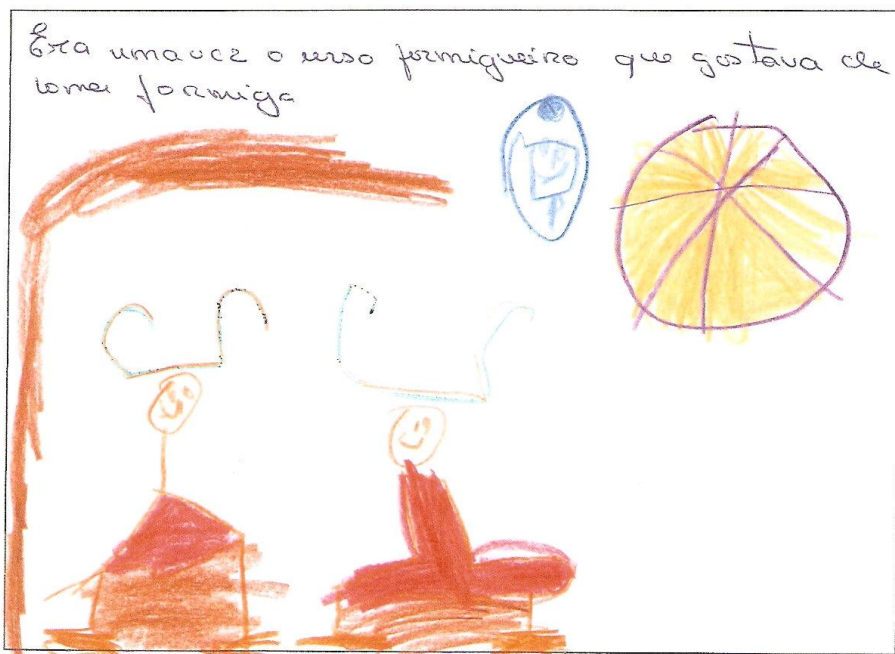 Era uma vez o urso formigueiro que gostava de
comer formiga